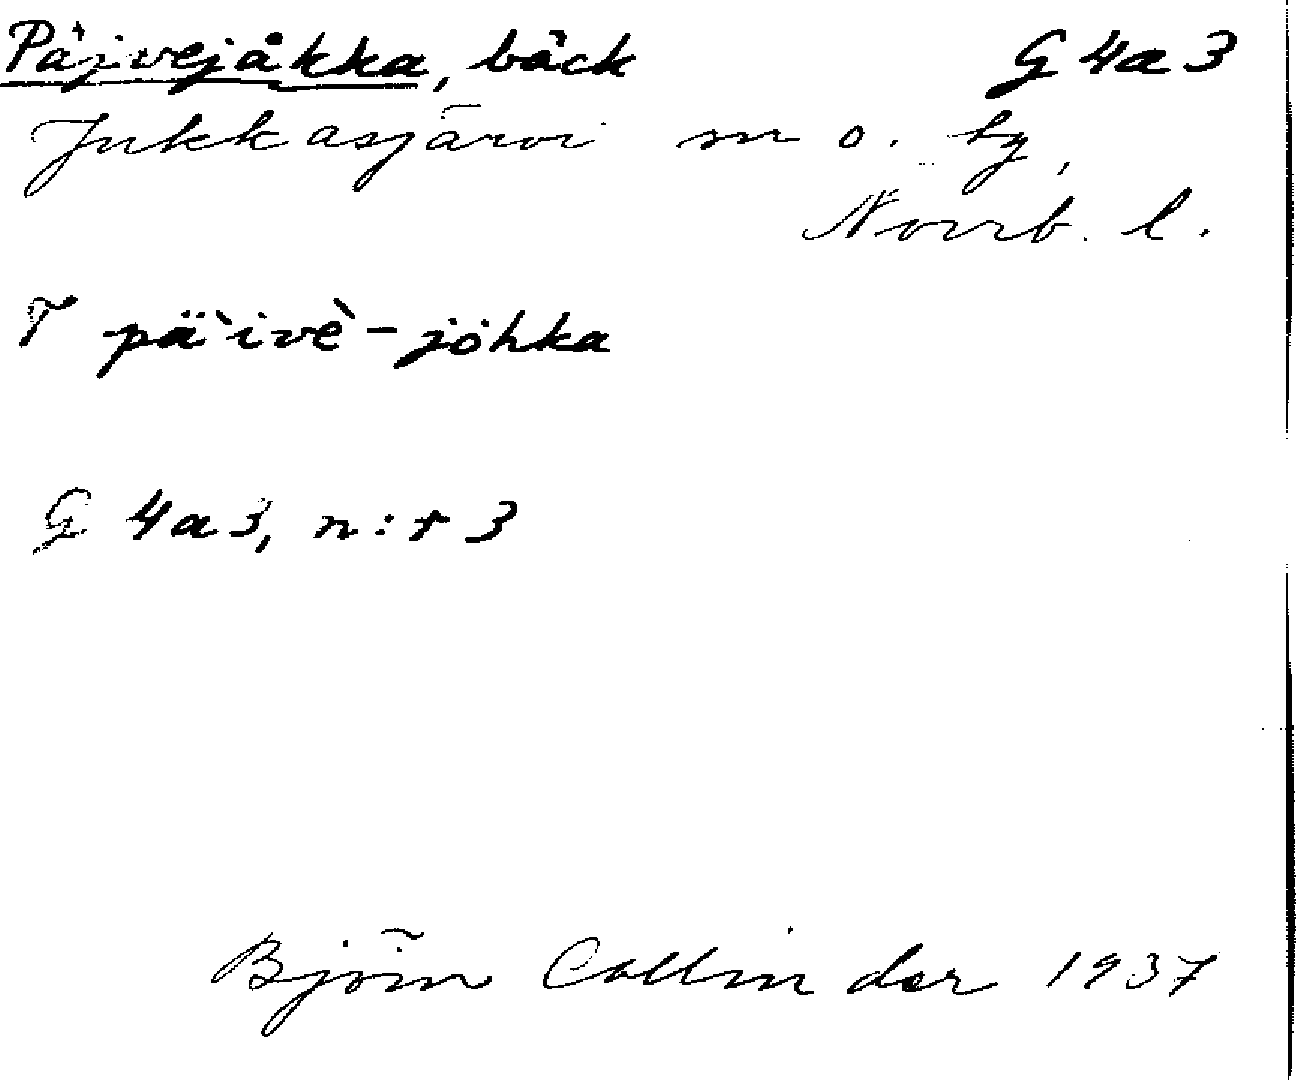 Päjvejåkka, bäck G 4a3
Jukkasjärvi sn o. tg,
Norrb. l.
T pä̀ivè-jòhka
G 4a3, n:r 3
Björn Collinder 1937